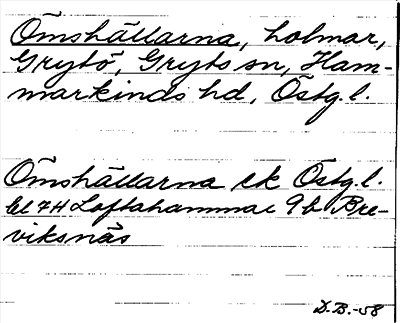 Ömshällarna, holmar,
Grytö, Gryts sn, Ham-
markinds hd, Östg.l.
Ömshällarna ek Östg.l.
bl 7H Loftahammar 9b Bre-
viksnäs
D.B.-58